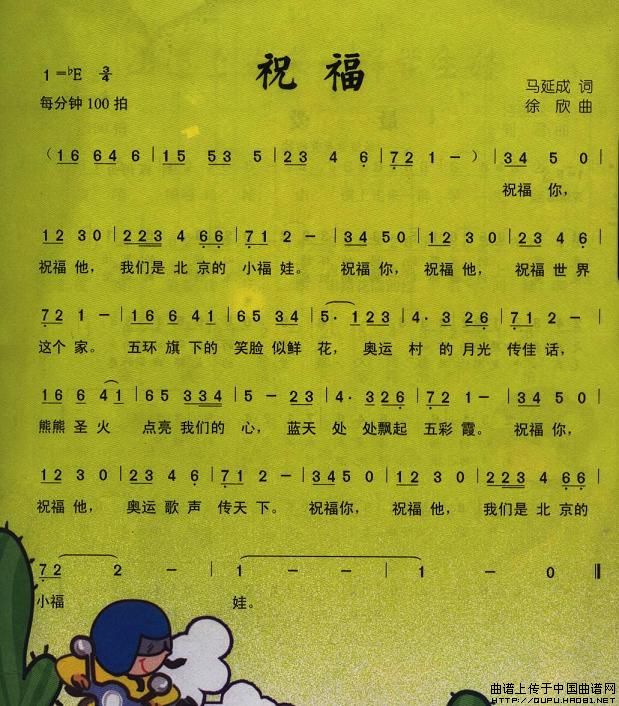 祝福
1=♭E 3/4
马延成 词
每分钟100拍
徐欣 曲
( 16 64 6 | 15 53 5 | 23 4 6 | 72 1 - ) | 34 5 0 |
祝福 你，
12 3 0 | 223 4 66 | 71 2 - | 34 5 0 | 12 3 0 | 23 4 6 |
祝福 他， 我们是 北 京的 小福 娃。 祝福 你， 祝福 他， 祝福 世 界
72 1 - | 16 6 41 | 65 5 34 | 5· 123 | 4· 3 26 | 71 2 - |
这个 家。 五环 旗 下的 笑脸 似鲜 花， 奥运 村 的 月光 传佳 话，
16 6 41 | 65 5 334 | 5 - 23 | 4· 326 | 72 1 - | 34 5 0 |
熊熊 圣 火 点亮 我们的 心， 蓝天 处 处飘起 五彩 霞。 祝福 你，
12 3 0 | 23 4 6 | 71 2 - | 34 5 0 | 12 3 0 | 223 4 66 |
祝福 他， 奥运 歌 声 传天 下。 祝福你， 祝福 他， 我们是 北 京的
72 2 - | 1 - - | 1 - 0 ‖
小福 娃。
曲谱上传于中国曲谱网
HTTP://QUPU.HAO81.NET